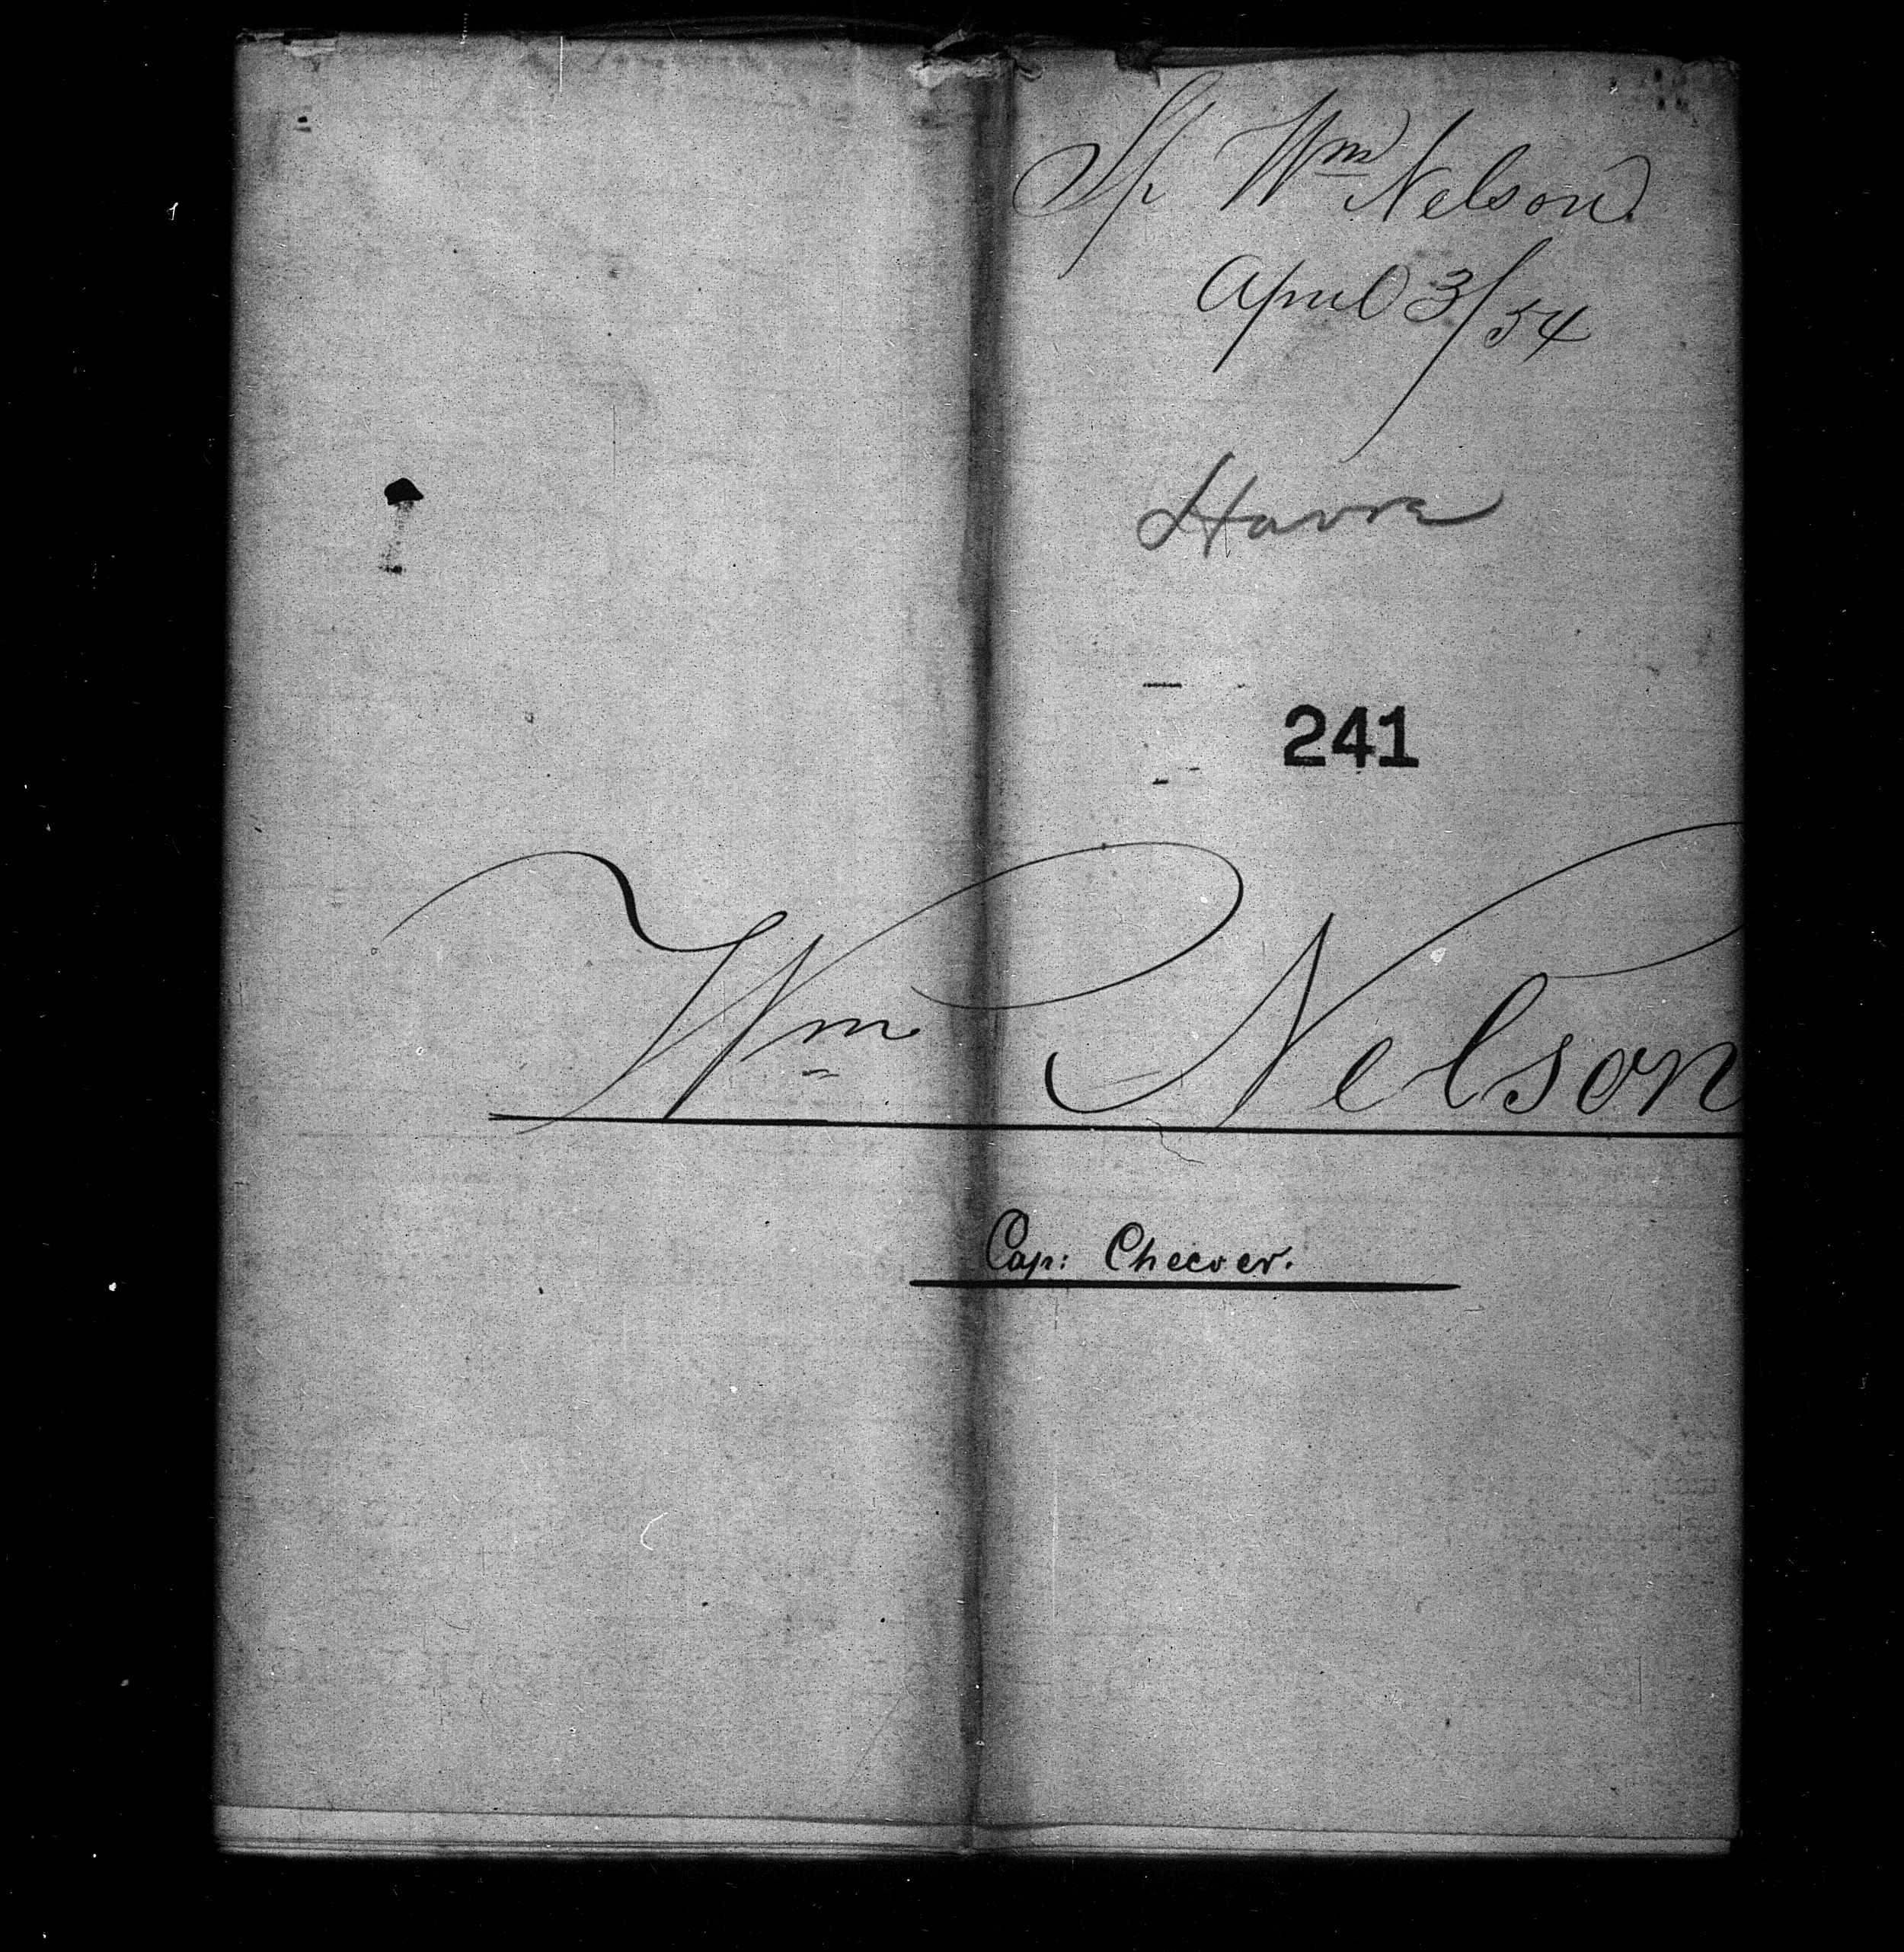 Sh Wm Nelson.
April 3/54
Havre
241
Wm Nelson
Cap: Cheever.